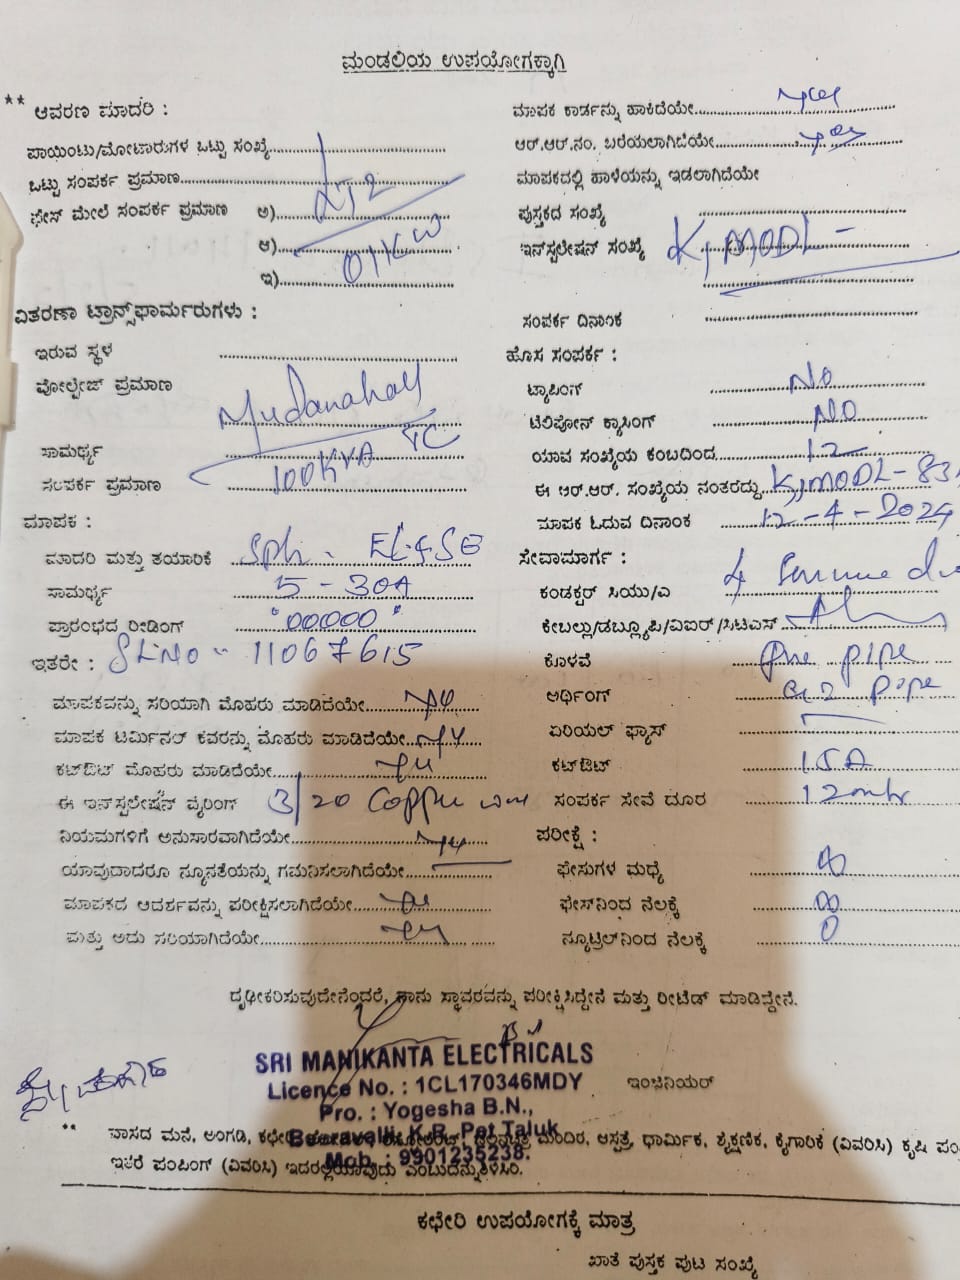 ಮಂಡಲಿಯ ಉಪಯೋಗಕ್ಕಾಗಿ
** ಆವರಣ ಮಾದರಿ :
ಪಾಯಿಂಟು/ಮೋಟಾರುಗಳ ಒಟ್ಟು ಸಂಖ್ಯೆ
ಒಟ್ಟು ಸಂಪರ್ಕ ಪ್ರಮಾಣ
ಫೇಸ್ ಮೇಲೆ ಸಂಪರ್ಕ ಪ್ರಮಾಣ ಅ) LT2
ಆ)
ಇ) 01KW
ವಿತರಣಾ ಟ್ರಾನ್ಸ್‌ಫಾರ್ಮರುಗಳು :
ಇರುವ ಸ್ಥಳ
ವೋಲ್ಟೇಜ್ ಪ್ರಮಾಣ
ಸಾಮರ್ಥ್ಯ
ಸಂಪರ್ಕ ಪ್ರಮಾಣ 100KVA TC
ಮಾಪಕ :
ಮಾದರಿ ಮತ್ತು ತಯಾರಿಕೆ
ಸಾಮರ್ಥ್ಯ 5-30A
ಪ್ರಾರಂಭದ ರೀಡಿಂಗ್ "00000"
ಇತರೇ : SL.NO - 11067615
ಮಾಪಕವನ್ನು ಸರಿಯಾಗಿ ಮೊಹರು ಮಾಡಿದೆಯೇ
ಮಾಪಕ ಟರ್ಮಿನಲ್ ಕವರನ್ನು ಮೊಹರು ಮಾಡಿದೆಯೇ
ಕಟ್‌ಔಟ್ ಮೊಹರು ಮಾಡಿದೆಯೇ
ಈ ಇನ್‌ಸ್ಟಲೇಷನ್ ವೈರಿಂಗ್ 3/20 Copper wire
ನಿಯಮಗಳಿಗೆ ಅನುಸಾರವಾಗಿದೆಯೇ
ಯಾವುದಾದರೂ ನ್ಯೂನತೆಯನ್ನು ಗಮನಿಸಲಾಗಿದೆಯೇ
ಮಾಪಕದ ಆದರ್ಶವನ್ನು ಪರೀಕ್ಷಿಸಲಾಗಿದೆಯೇ
ಮತ್ತು ಅದು ಸರಿಯಾಗಿದೆಯೇ
ಮಾಪಕ ಕಾರ್ಡನ್ನು ಹಾಕಿದೆಯೇ yes
ಆರ್.ಆರ್.ನಂ. ಬರೆಯಲಾಗಿದೆಯೇ yes
ಮಾಪಕದಲ್ಲಿ ಹಾಳೆಯನ್ನು ಇಡಲಾಗಿದೆಯೇ
ಪುಸ್ತಕದ ಸಂಖ್ಯೆ
ಇನ್‌ಸ್ಟಲೇಷನ್ ಸಂಖ್ಯೆ KJMODL -
ಸಂಪರ್ಕ ದಿನಾಂಕ
ಹೊಸ ಸಂಪರ್ಕ :
ಟ್ಯಾಪಿಂಗ್ NO
ಟೆಲಿಪೋನ್ ಕ್ಯಾಸಿಂಗ್ NO
ಯಾವ ಸಂಖ್ಯೆಯ ಕಂಬದಿಂದ 12
ಈ ಆರ್.ಆರ್. ಸಂಖ್ಯೆಯ ನಂತರದ್ದು KJMODL-83
ಮಾಪಕ ಓದುವ ದಿನಾಂಕ 12-4-2024
ಸೇವಾಮಾರ್ಗ :
ಕಂಡಕ್ಟರ್ ಸಿಯು/ಎ
ಕೇಬಲ್ಲು/ಡಬ್ಲ್ಯೂಪಿ/ವಿಐಆರ್/ಸಿಟಿಎಸ್
ಕೊಳವೆ pipe
ಅರ್ಥಿಂಗ್ pipe
ಏರಿಯಲ್ ಫ್ಯಾಸ್
ಕಟ್‌ಔಟ್ 15A
ಸಂಪರ್ಕ ಸೇವೆ ದೂರ 12mtr
ಪರೀಕ್ಷೆ :
ಫೇಸುಗಳ ಮಧ್ಯೆ ∞
ಫೇಸ್‌ನಿಂದ ನೆಲಕ್ಕೆ ∞
ನ್ಯೂಟ್ರಲ್‌ನಿಂದ ನೆಲಕ್ಕೆ 0
ದೃಢೀಕರಿಸುವುದೇನೆಂದರೆ, ನಾನು ಸ್ಥಾವರವನ್ನು ಪರೀಕ್ಷಿಸಿದ್ದೇನೆ ಮತ್ತು ರೀಟೆಡ್ ಮಾಡಿದ್ದೇನೆ.
SRI MANIKANTA ELECTRICALS
Licence No. : 1CL170346MDY
Pro. : Yogesha B.N.,
Beeravalli, K.R. Pet Taluk
Mob. : 9901235238.
ಇಂಜಿನಿಯರ್
** ವಾಸದ ಮನೆ, ಅಂಗಡಿ, ಮಂದಿರ, ಆಸ್ಪತ್ರೆ, ಧಾರ್ಮಿಕ, ಶೈಕ್ಷಣಿಕ, ಕೈಗಾರಿಕೆ (ವಿವರಿಸಿ) ಕೃಷಿ
ಇತರೆ ಪಂಪಿಂಗ್ (ವಿವರಿಸಿ) ಇದರಲ್ಲಿ ಯಾವುದು ಎಂಬುದನ್ನು ತಿಳಿಸಿರಿ.
ಕಛೇರಿ ಉಪಯೋಗಕ್ಕೆ ಮಾತ್ರ
ಖಾತೆ ಪುಸ್ತಕ ಪುಟ ಸಂಖ್ಯೆ